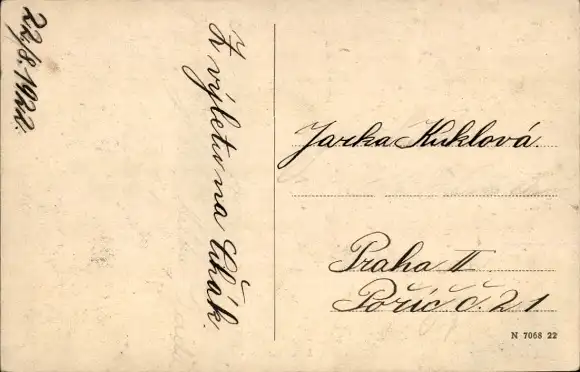 22./8. 1922.
Z výletu na Čihák.
Jarka Kuklová.
Praha II
Poříč č. 21
N 7068 22